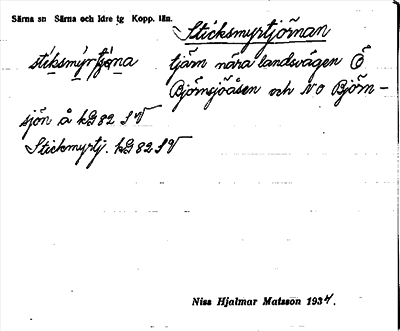 Särna sn Särna och Idre tg Kopp. län.
Sticksmyrtjörnan
stiksmýrtjö̀na tjärn nära landsvägen Ö
Björnsjöåsen och NO Björn-
sjön å kB 82 SV
Stickmyrtj. kB 82 SV
Niss Hjalmar Matsson 1934.